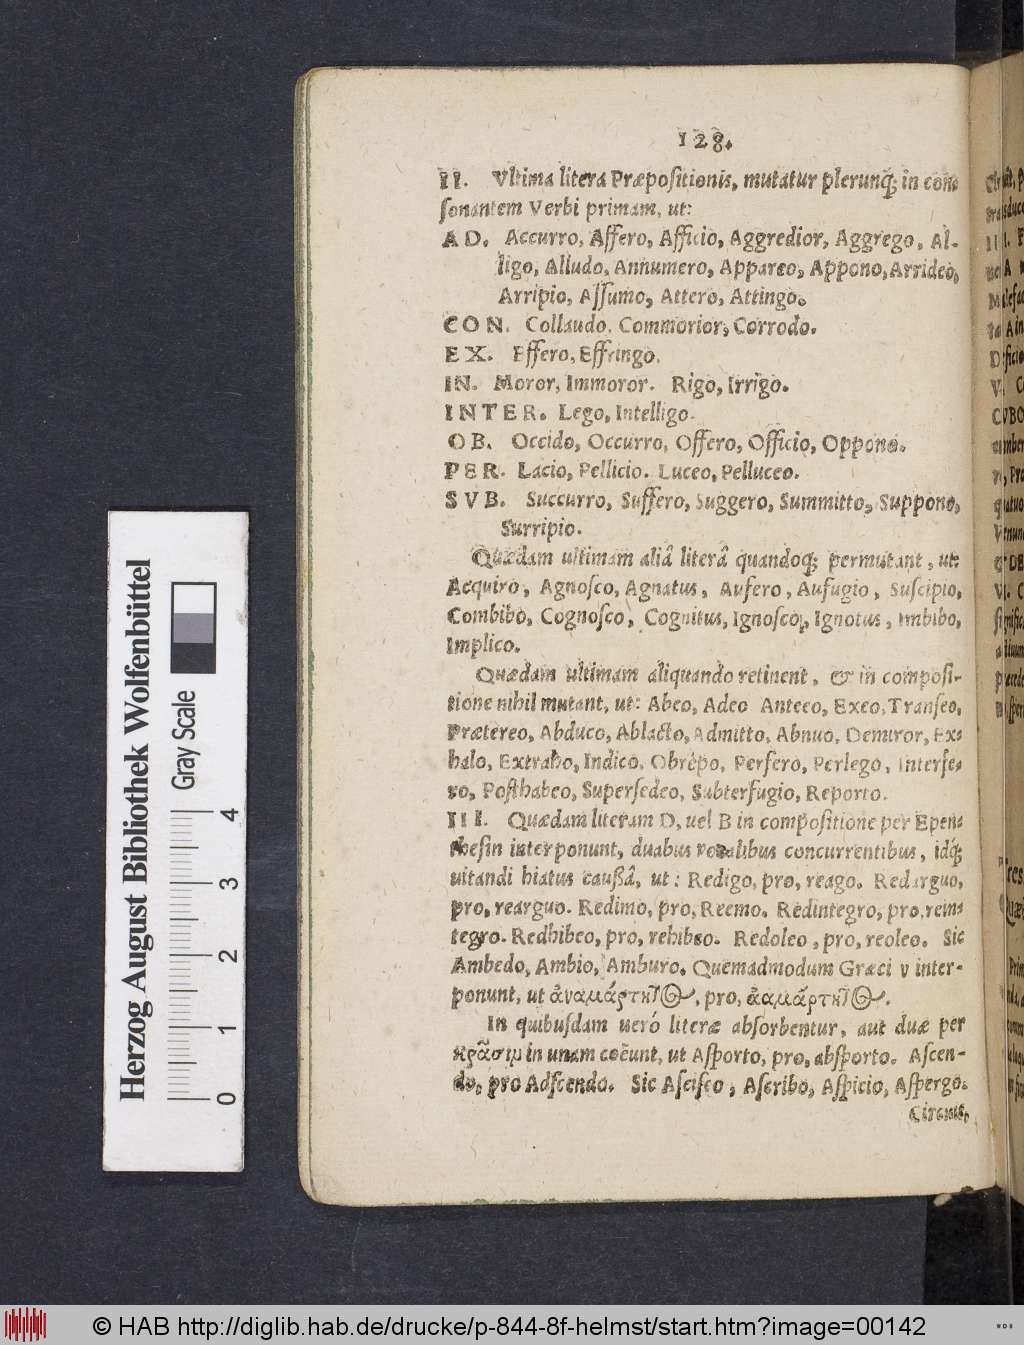 128.
II. Vltima litera Præpositionis, mutatur plerunq; in con-
sonantem Verbi primam, ut:
AD. Accurro, Affero, Afficio, Aggredior, Aggrego, Al-
ligo, Alludo, Annumero, Appareo, Appono, Arrideo,
Arripio, Assumo, Attero, Attingo.
CON. Collaudo. Commorior, Corrodo.
EX. Effero, Effringo.
IN. Moror, Immoror. Rigo, Irrigo.
INTER. Lego, Intelligo.
OB. Occido, Occurro, Offero, Officio, Oppono.
PER. Lacio, Pellicio. Luceo, Pelluceo.
SVB. Succurro, Suffero, Suggero, Summitto, Suppono,
Surripio.
Quædam ultimam aliâ literâ quandoq; permutant, ut:
Acquiro, Agnosco, Agnatus, Aufero, Aufugio, Suscipio,
Combibo, Cognosco, Cognitus, Ignosco, Ignotus, Imbibo,
Implico.
Quædam ultimam aliquando retinent, & in composi-
tione nihil mutant, ut: Abeo, Adeo Anteeo, Exeo, Transeo,
Prætereo, Abduco, Ablacto, Admitto, Abnuo, Demiror, Ex-
halo, Extraho, Indico, Obrêpo, Perfero, Perlego, Interfe-
ro, Posthabeo, Supersedeo, Subterfugio, Reporto.
III. Quædam literam D, uel B in compositione per Epen-
thesin interponunt, duabus vocalibus concurrentibus, idq́;
uitandi hiatus caußâ, ut: Redigo, pro, reago. Redarguo,
pro, rearguo. Redimo, pro, Reemo. Redintegro, pro, rein-
tegro. Redhibeo, pro, rehibeo. Redoleo, pro, reoleo. Sic
Ambedo, Ambio, Amburo. Quemadmodum Græci ν inter-
ponunt, ut ἀναμάρτητος, pro, ἀαμάρτητος.
In quibusdam ueró literæ absorbentur, aut duæ per
κρᾶσιμ in unam coëunt, ut Asporto, pro, absporto. Ascen-
do, pro Adscendo. Sic Ascisco, Ascribo, Aspicio, Aspergo.
Herzog August Bibliothek Wolfenbüttel
Gray Scale
0 1 2 3 4
© HAB http://diglib.hab.de/drucke/p-844-8f-helmst/start.htm?image=00142